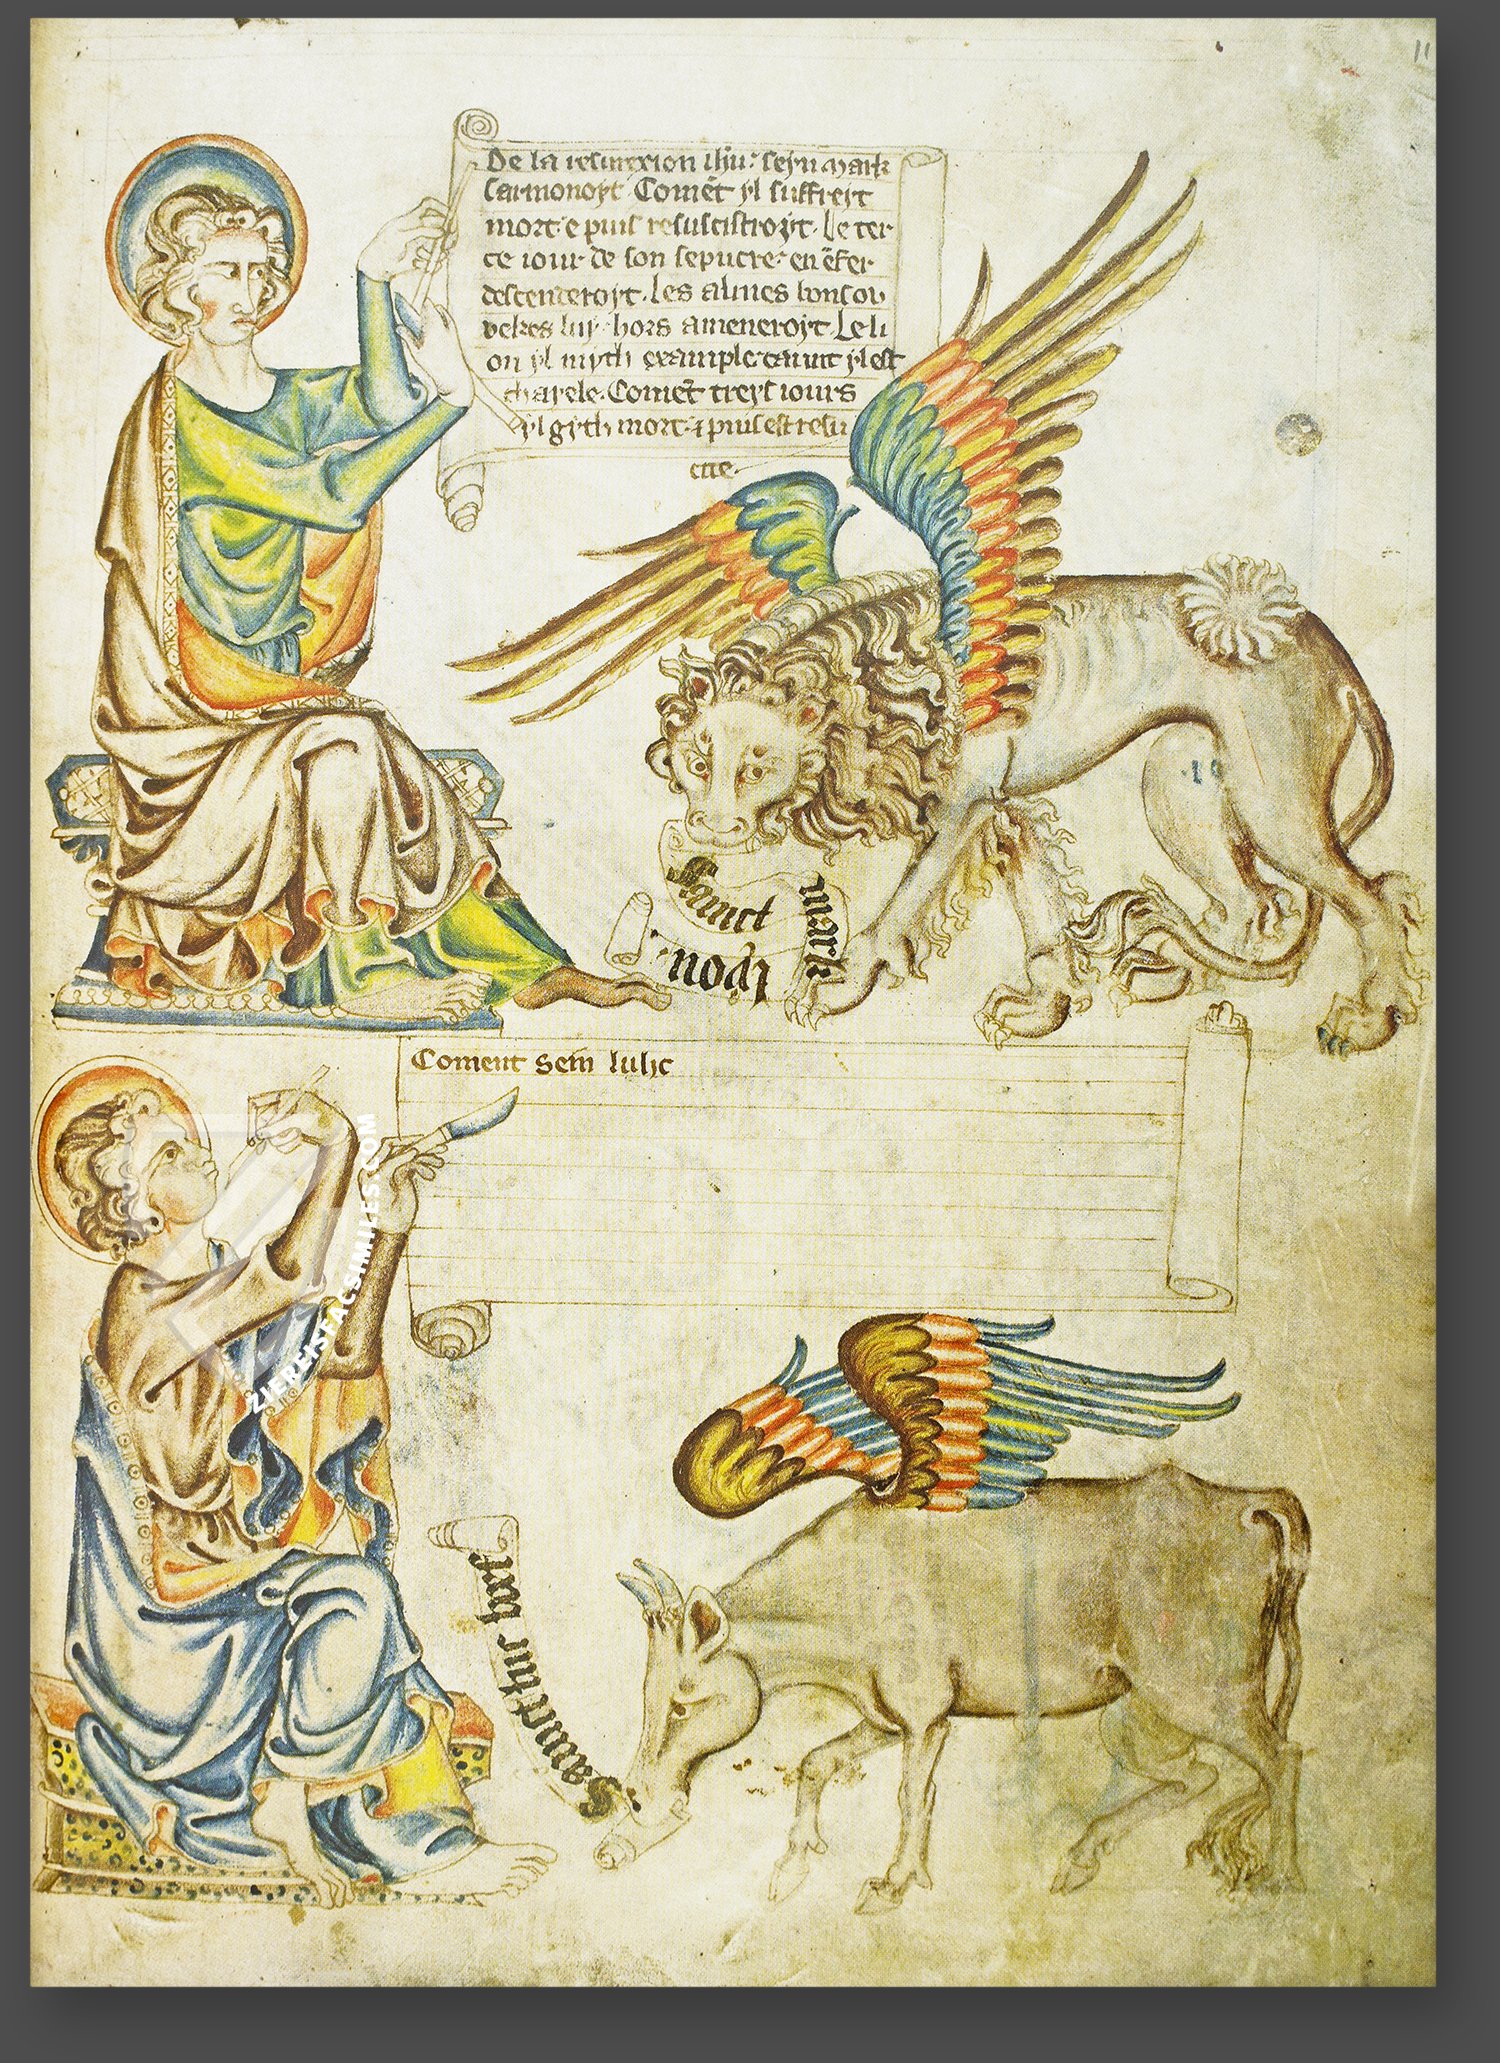 11
De la resurexion ihu: seyn Mark
sarmonoyt. Comēt yl suffreyt
mort: e puis resuscistroyt. Le ter
ce iour de son sepucre: en ēfer
descenderoyt. les almes bons ou
vekes luy hors ameneroyt. Le li
on yl myth example: caunt yl est
chayele. Comēt treys iours
yl gyth mort: & puis est resu
cite.
Sanct
mark
nodi
Coment Sein luhc
Sanctur
ZIEREISFACSIMILES.COM